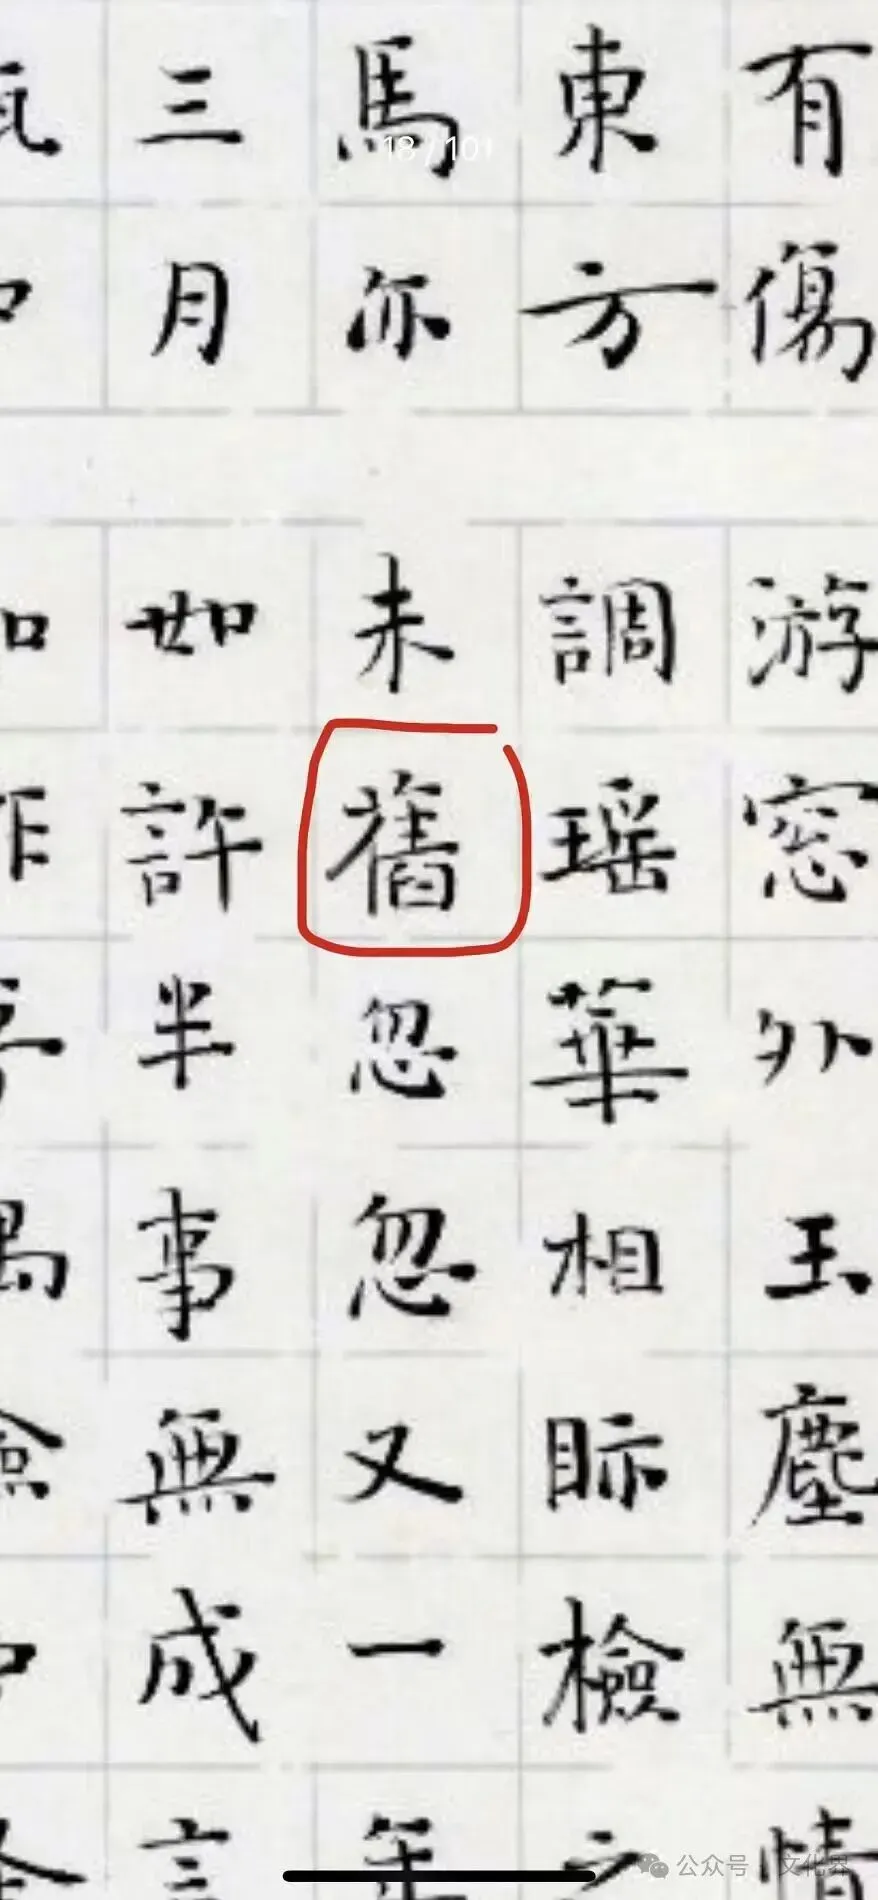 18/101
有傷
東方
馬亦
三月
游窓外玉塵無情
調瑶華相眎檢
未舊忽忽又一年
如許半事無成言
公众号·文化界